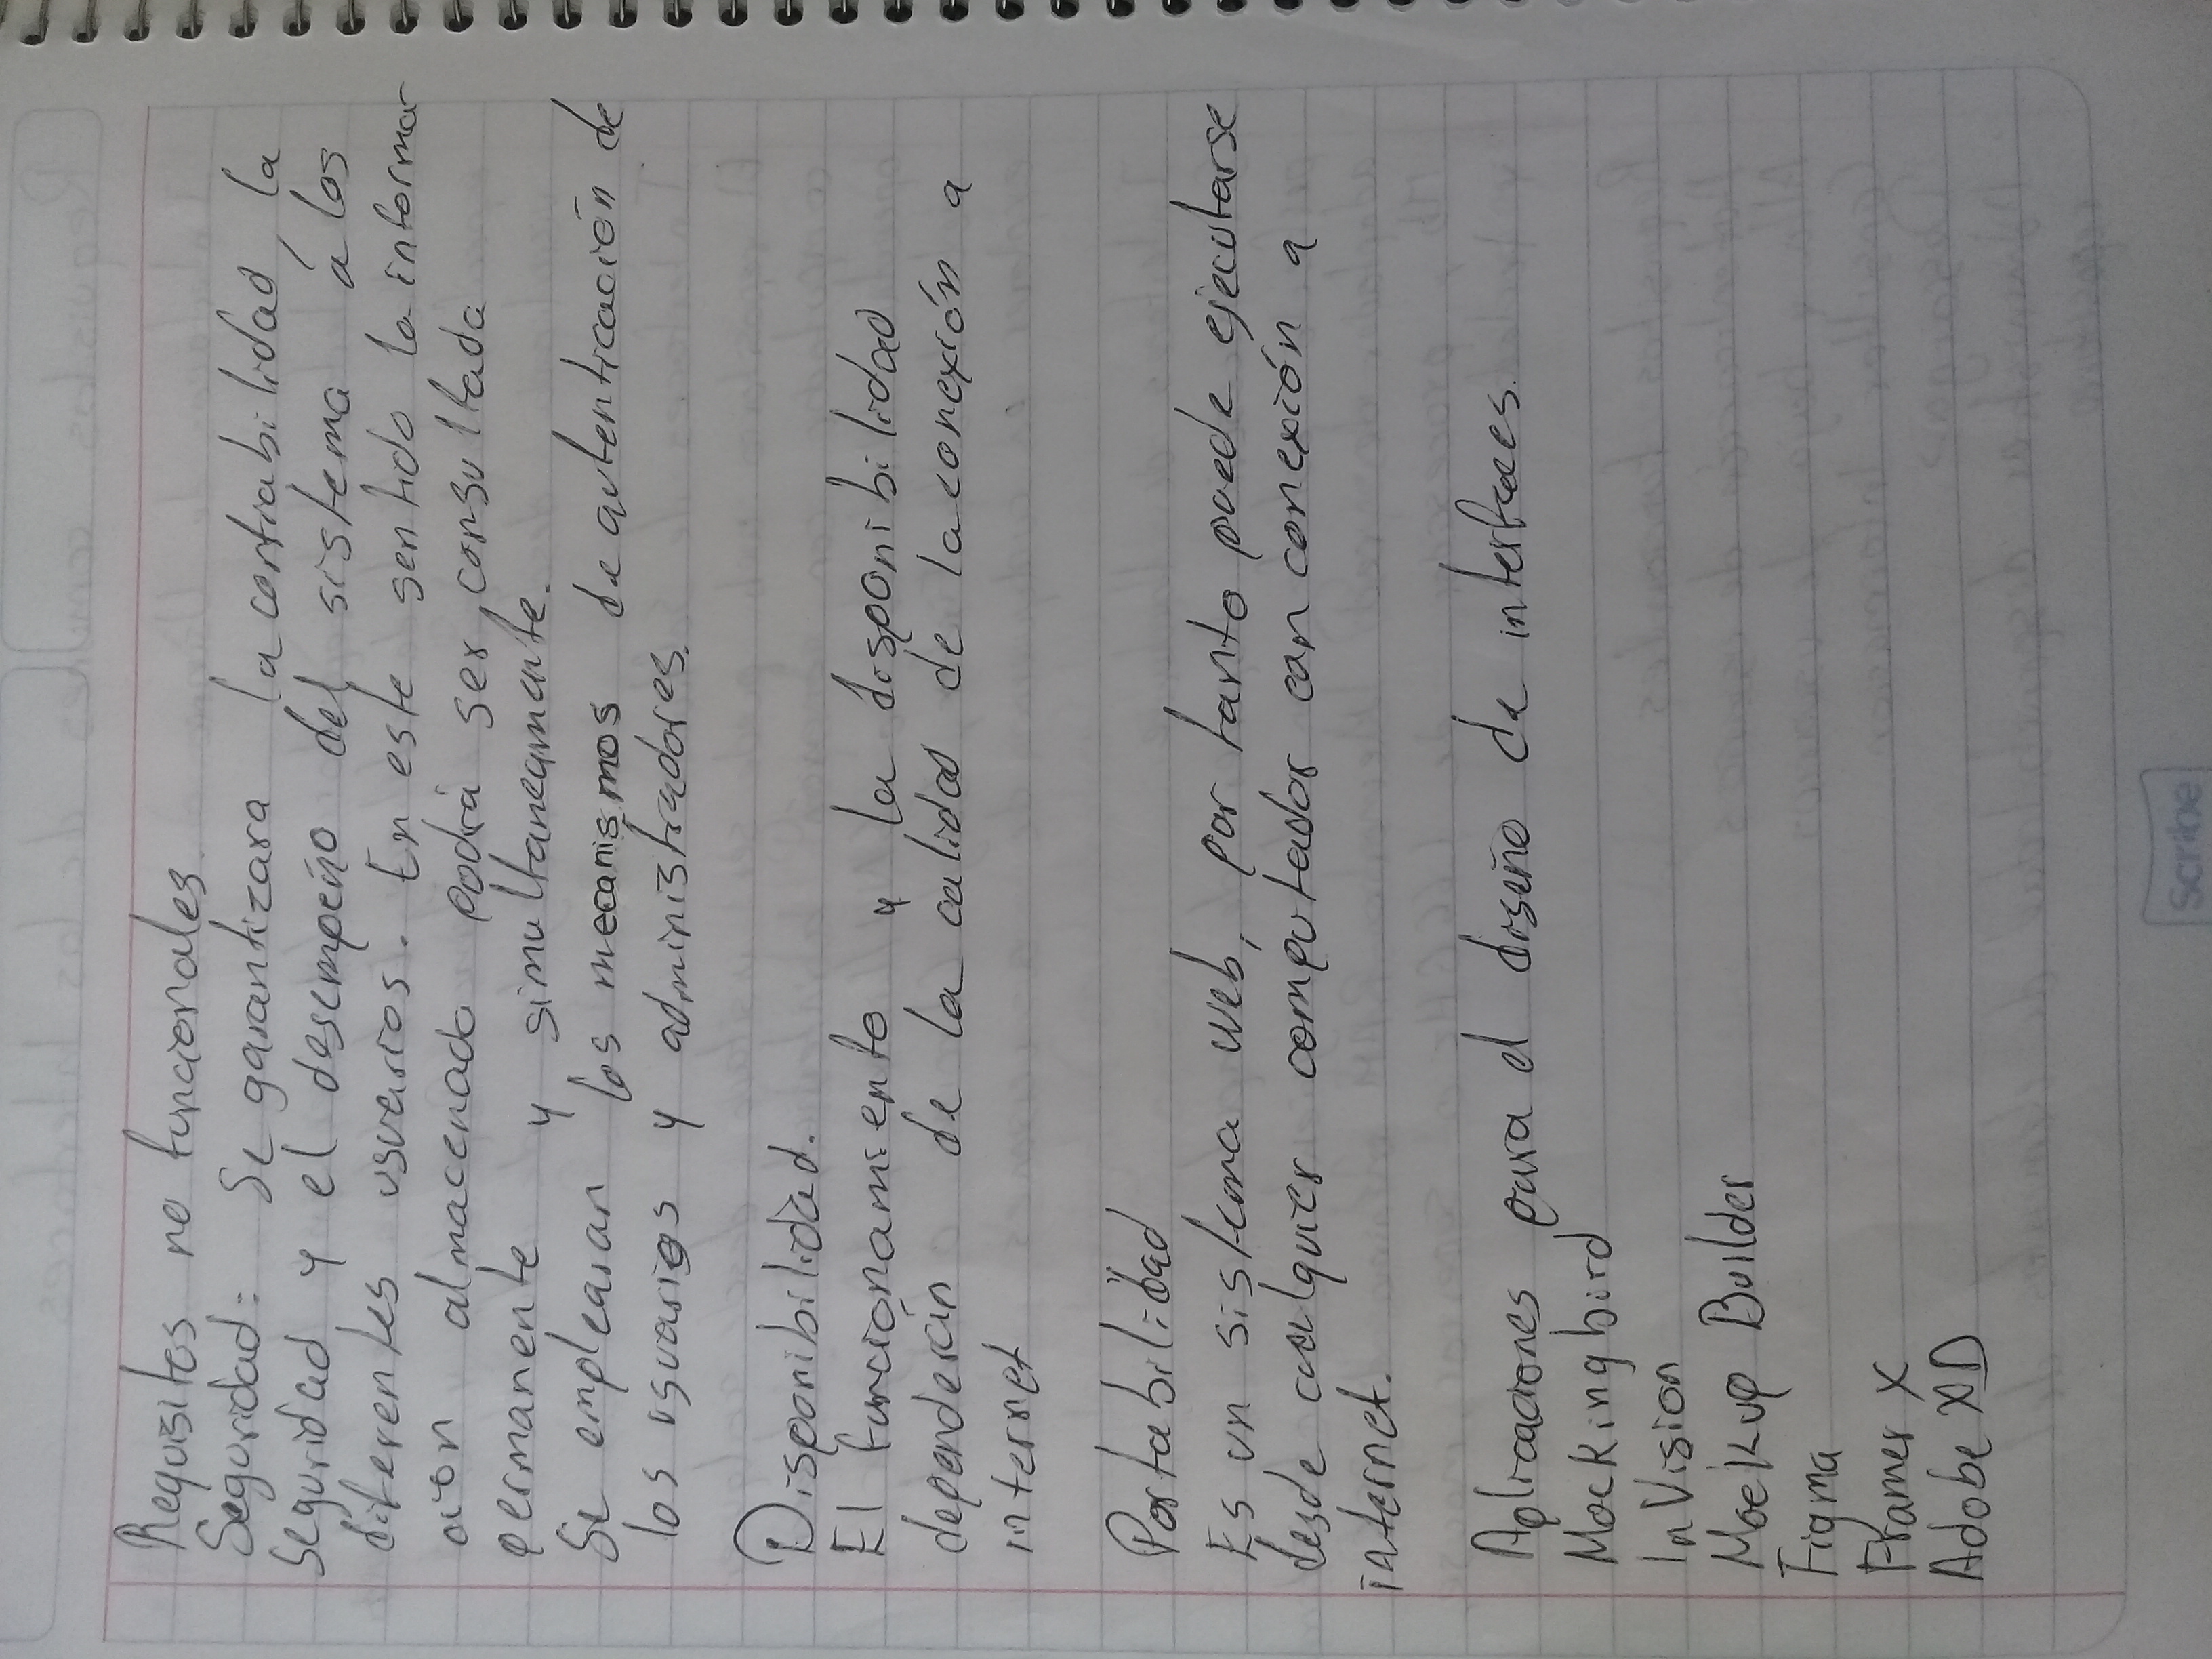 Requisitos no funcionales
Seguridad: Se garantizara la confiabilidad, la
seguridad y el desempeño del sistema a los
diferentes usuarios. En este sentido la informa-
ción almacenado podrá ser consultada
permanente y simultaneamente.
Se emplearan los mecanismos de autenticación de
los usuarios y administradores.
Disponibilidad.
El funcionamiento y la disponibilidad
dependerán de la calidad de la conexión a
internet
Portabilidad
Es un sistema web, por tanto puede ejecutarse
desde cualquier computador con conexión a
internet.
Aplicaciones para el diseño de interfaces.
Mockingbird
InVision
Mockup Builder
Figma
Framer X
Adobe XD
Scribe